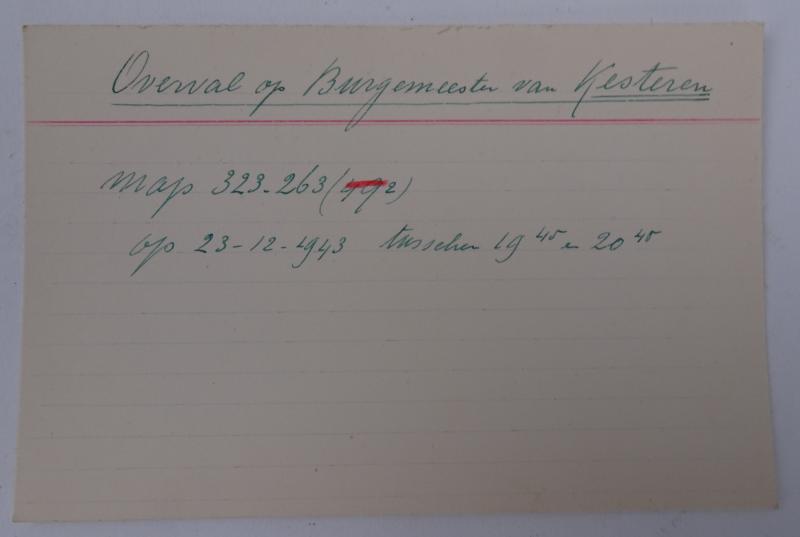 Overval op Burgemeester van Kesteren
map 323-263 (492)
op 23-12-1943 tusschen 19 45 en 20 45